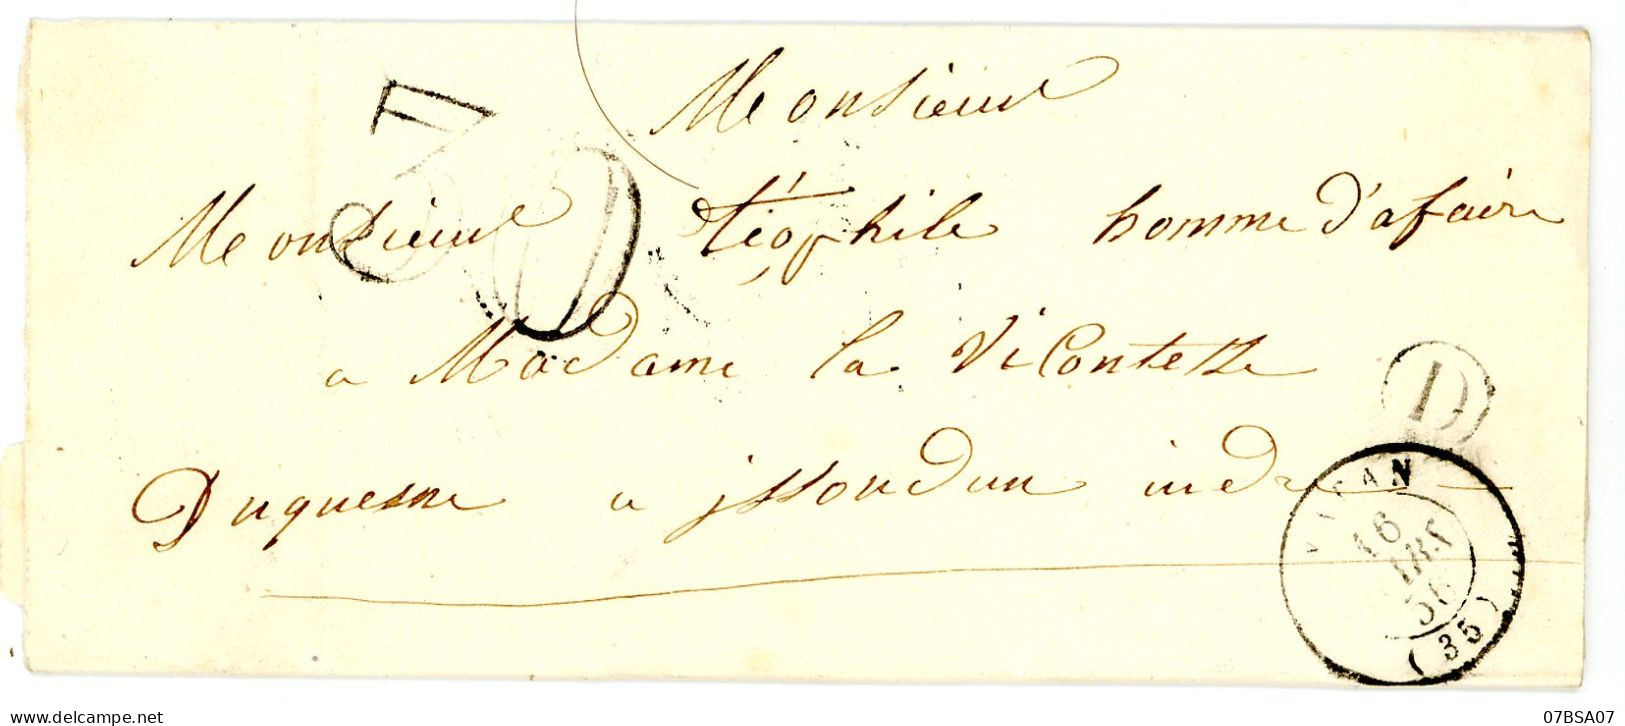 Monsieur
Monsieur téophile homme d'afaire
a Madame la Vicontesse
Duquesne a issoudun indre
30
D
VATAN
16
56
(35)
delcampe.net
07BSA07